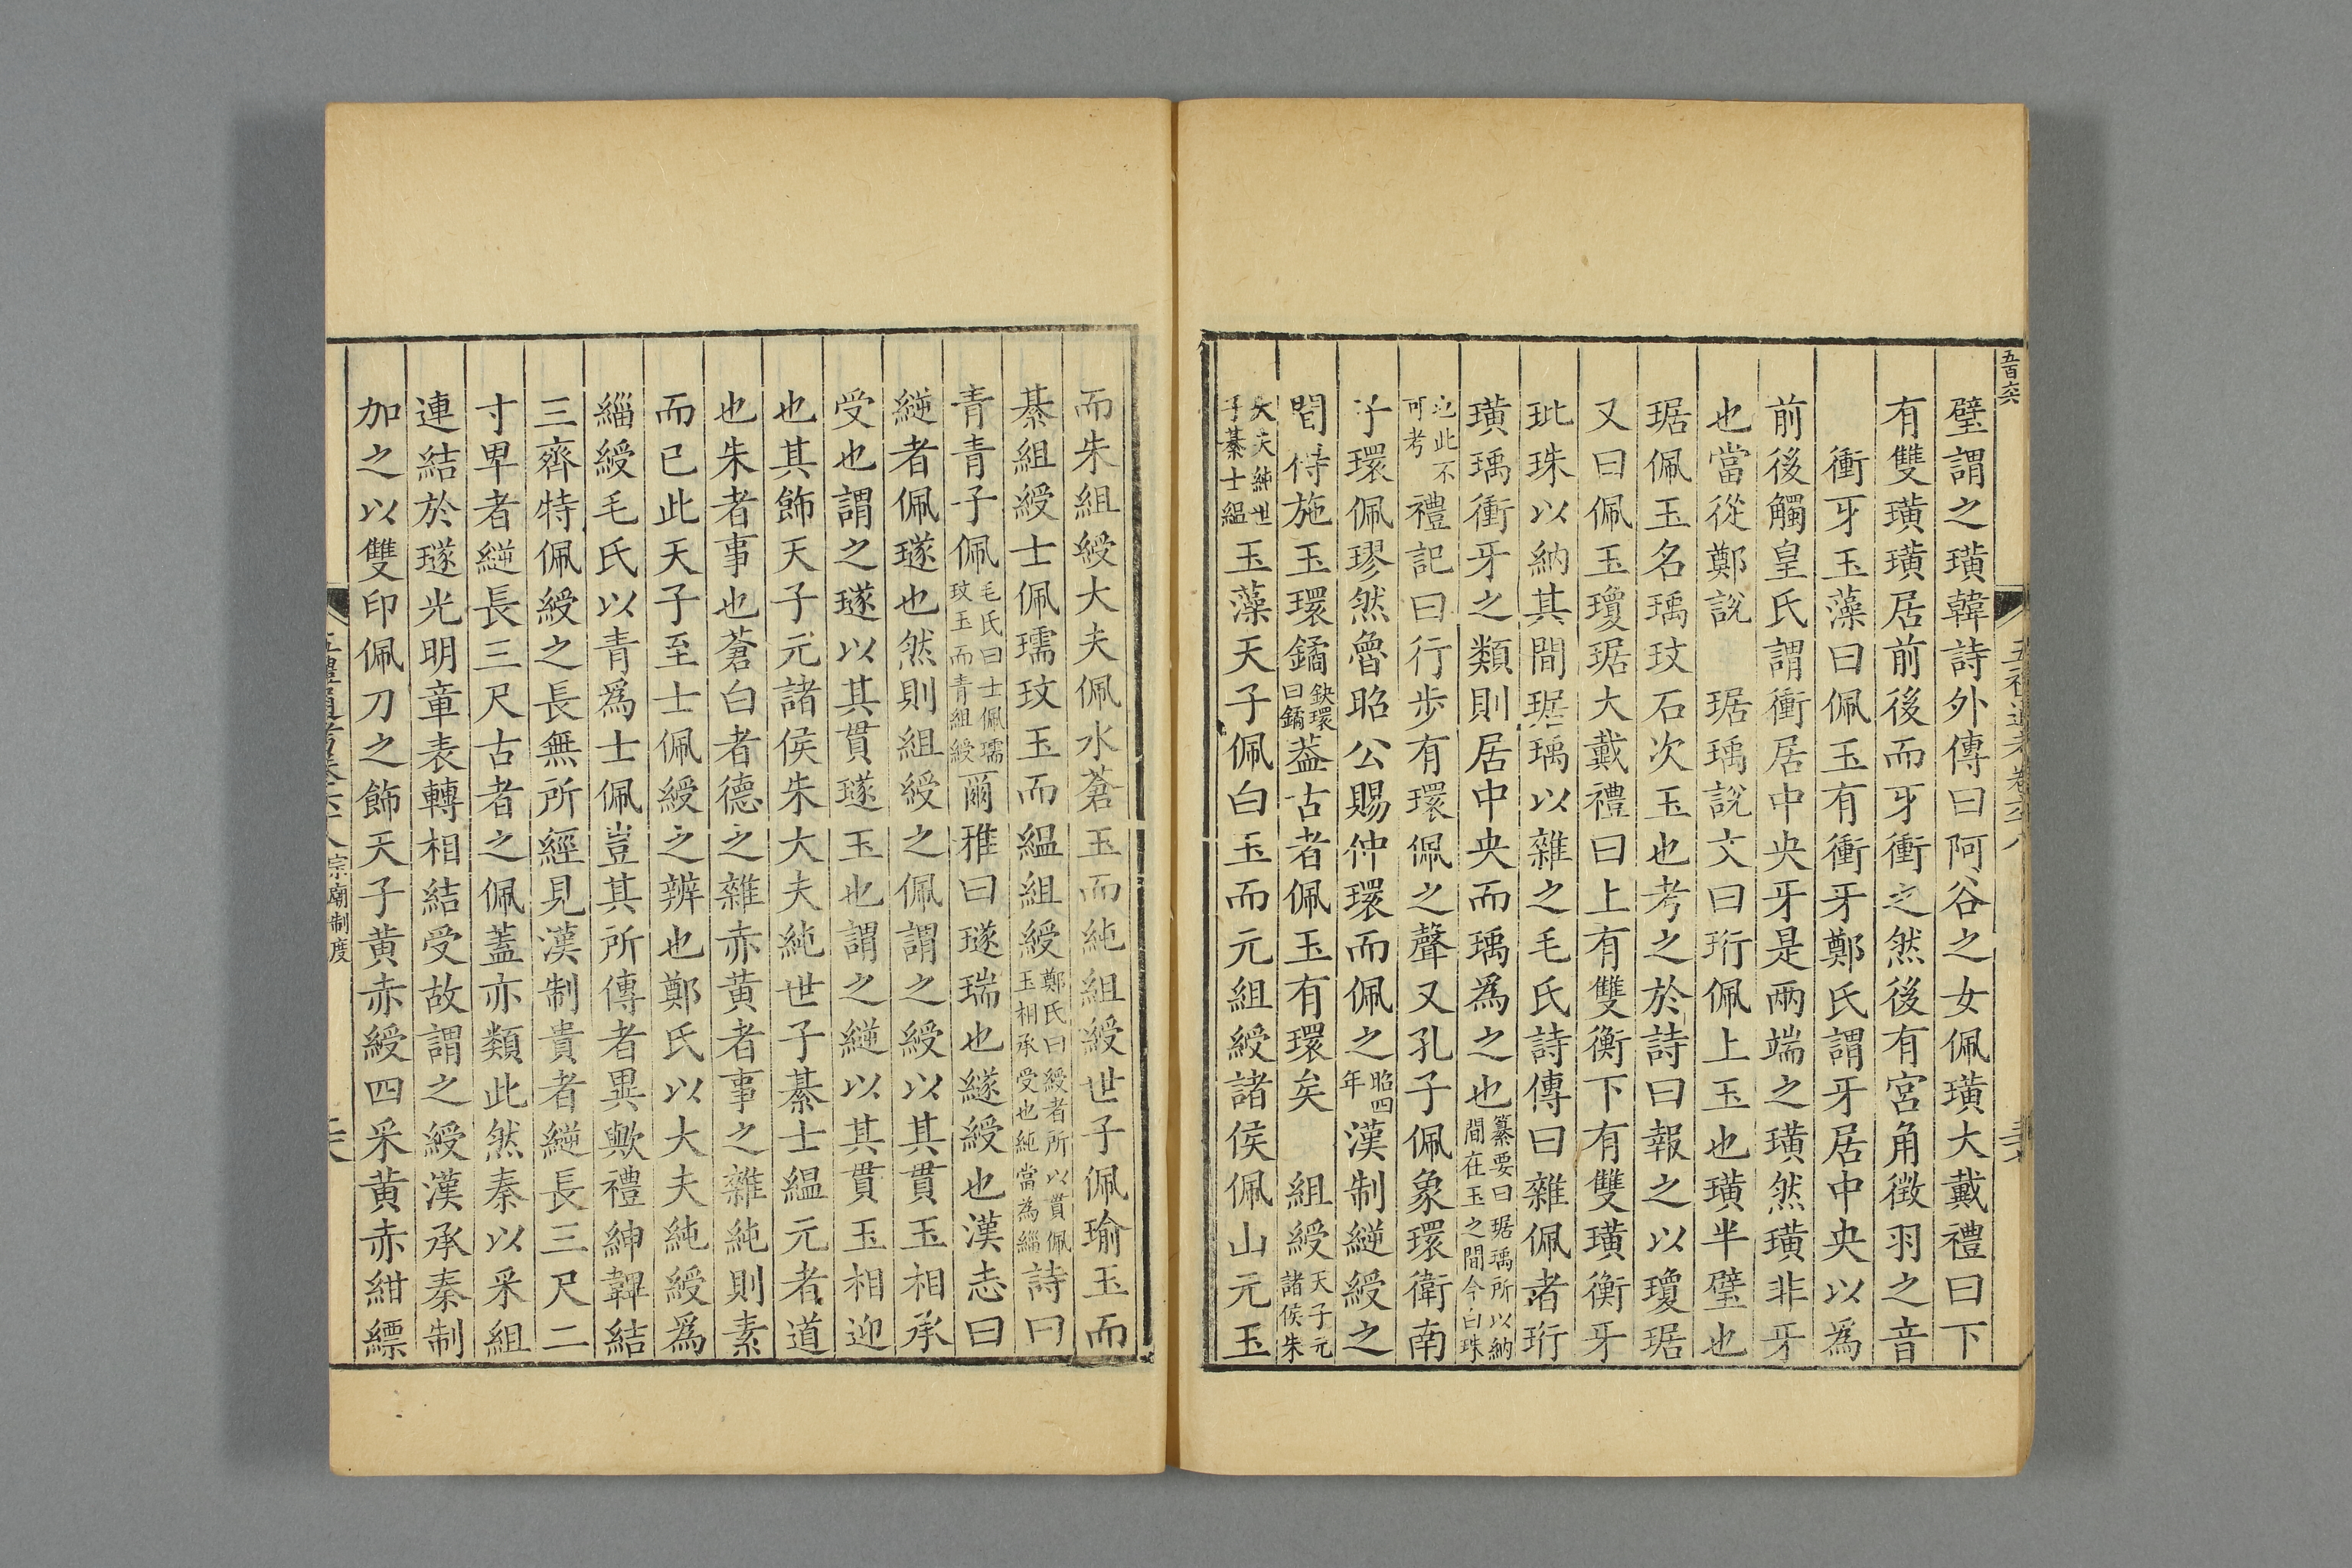 五百六
璧謂之璜韓詩外傳曰阿谷之女佩璜大戴禮曰下
有雙璜璜居前後而牙衝之然後有宮角徴羽之音
衝牙玉藻曰佩玉有衝牙鄭氏謂牙居中央以為
前後觸皇氏謂衝居中央牙是兩端之璜然璜非牙
也當從鄭說 琚瑀說文曰珩佩上玉也璜半璧也
琚佩玉名瑀玟石次玉也考之於詩曰報之以瓊琚
又曰佩玉瓊琚大戴禮曰上有雙衡下有雙璜衡牙
玭珠以納其間琚瑀以雜之毛氏詩傳曰雜佩者珩
璜瑀衝牙之類則居中央而瑀為之也纂要曰琚瑀所以納間在玉之間今白珠
也此不可考禮記曰行步有環佩之聲又孔子佩象環衛南
子環佩璆然魯昭公賜仲環而佩之昭四年漢制縌綬之
間得施玉環鐍鈌環曰鐍葢古者佩玉有環矣 組綬天子元諸侯朱
大夫純世子綦士縕玉藻天子佩白玉而元組綬諸侯佩山元玉
而朱組綬大夫佩水蒼玉而純組綬世子佩瑜玉而
綦組綬士佩瓀玟玉而縕組綬鄭氏曰綬者所以貫佩玉相承受也純當為緇詩曰
青青子佩毛氏曰士佩瓀玟玉而青組綬爾雅曰璲瑞也繸綬也漢志曰
縌者佩璲也然則組綬之佩謂之綬以其貫玉相承
受也謂之璲以其貫璲玉也謂之縌以其貫玉相迎
也其飾天子元諸侯朱大夫純世子綦士縕元者道
也朱者事也蒼白者德之雜赤黃者事之雜純則素
而已此天子至士佩綬之辨也鄭氏以大夫純綬爲
緇綬毛氏以青爲士佩豈其所傳者異歟禮紳韠結
三齊特佩綬之長無所經見漢制貴者縌長三尺二
寸卑者縌長三尺古者之佩蓋亦類此然秦以采組
連結於璲光明章表轉相結受故謂之綬漢承秦制
加之以雙印佩刀之飾天子黃赤綬四采黃赤紺縹
宗廟制度